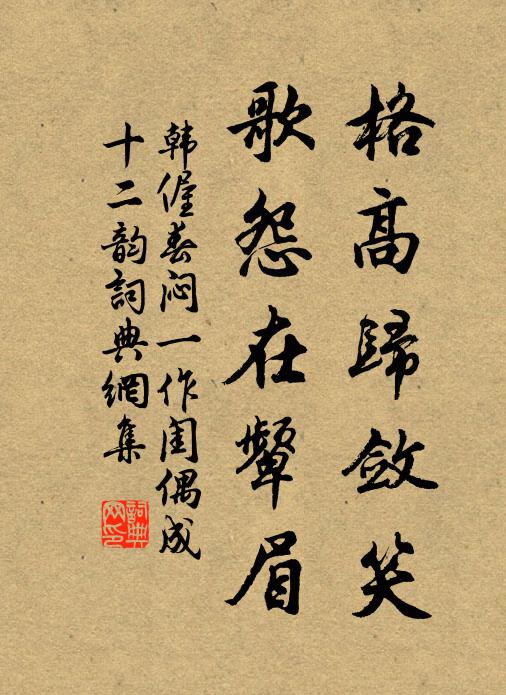 格高歸斂笑
歌怨在顰眉
韩偓春闷一作闺偶成
十二韵詞典網集
詞典
网印